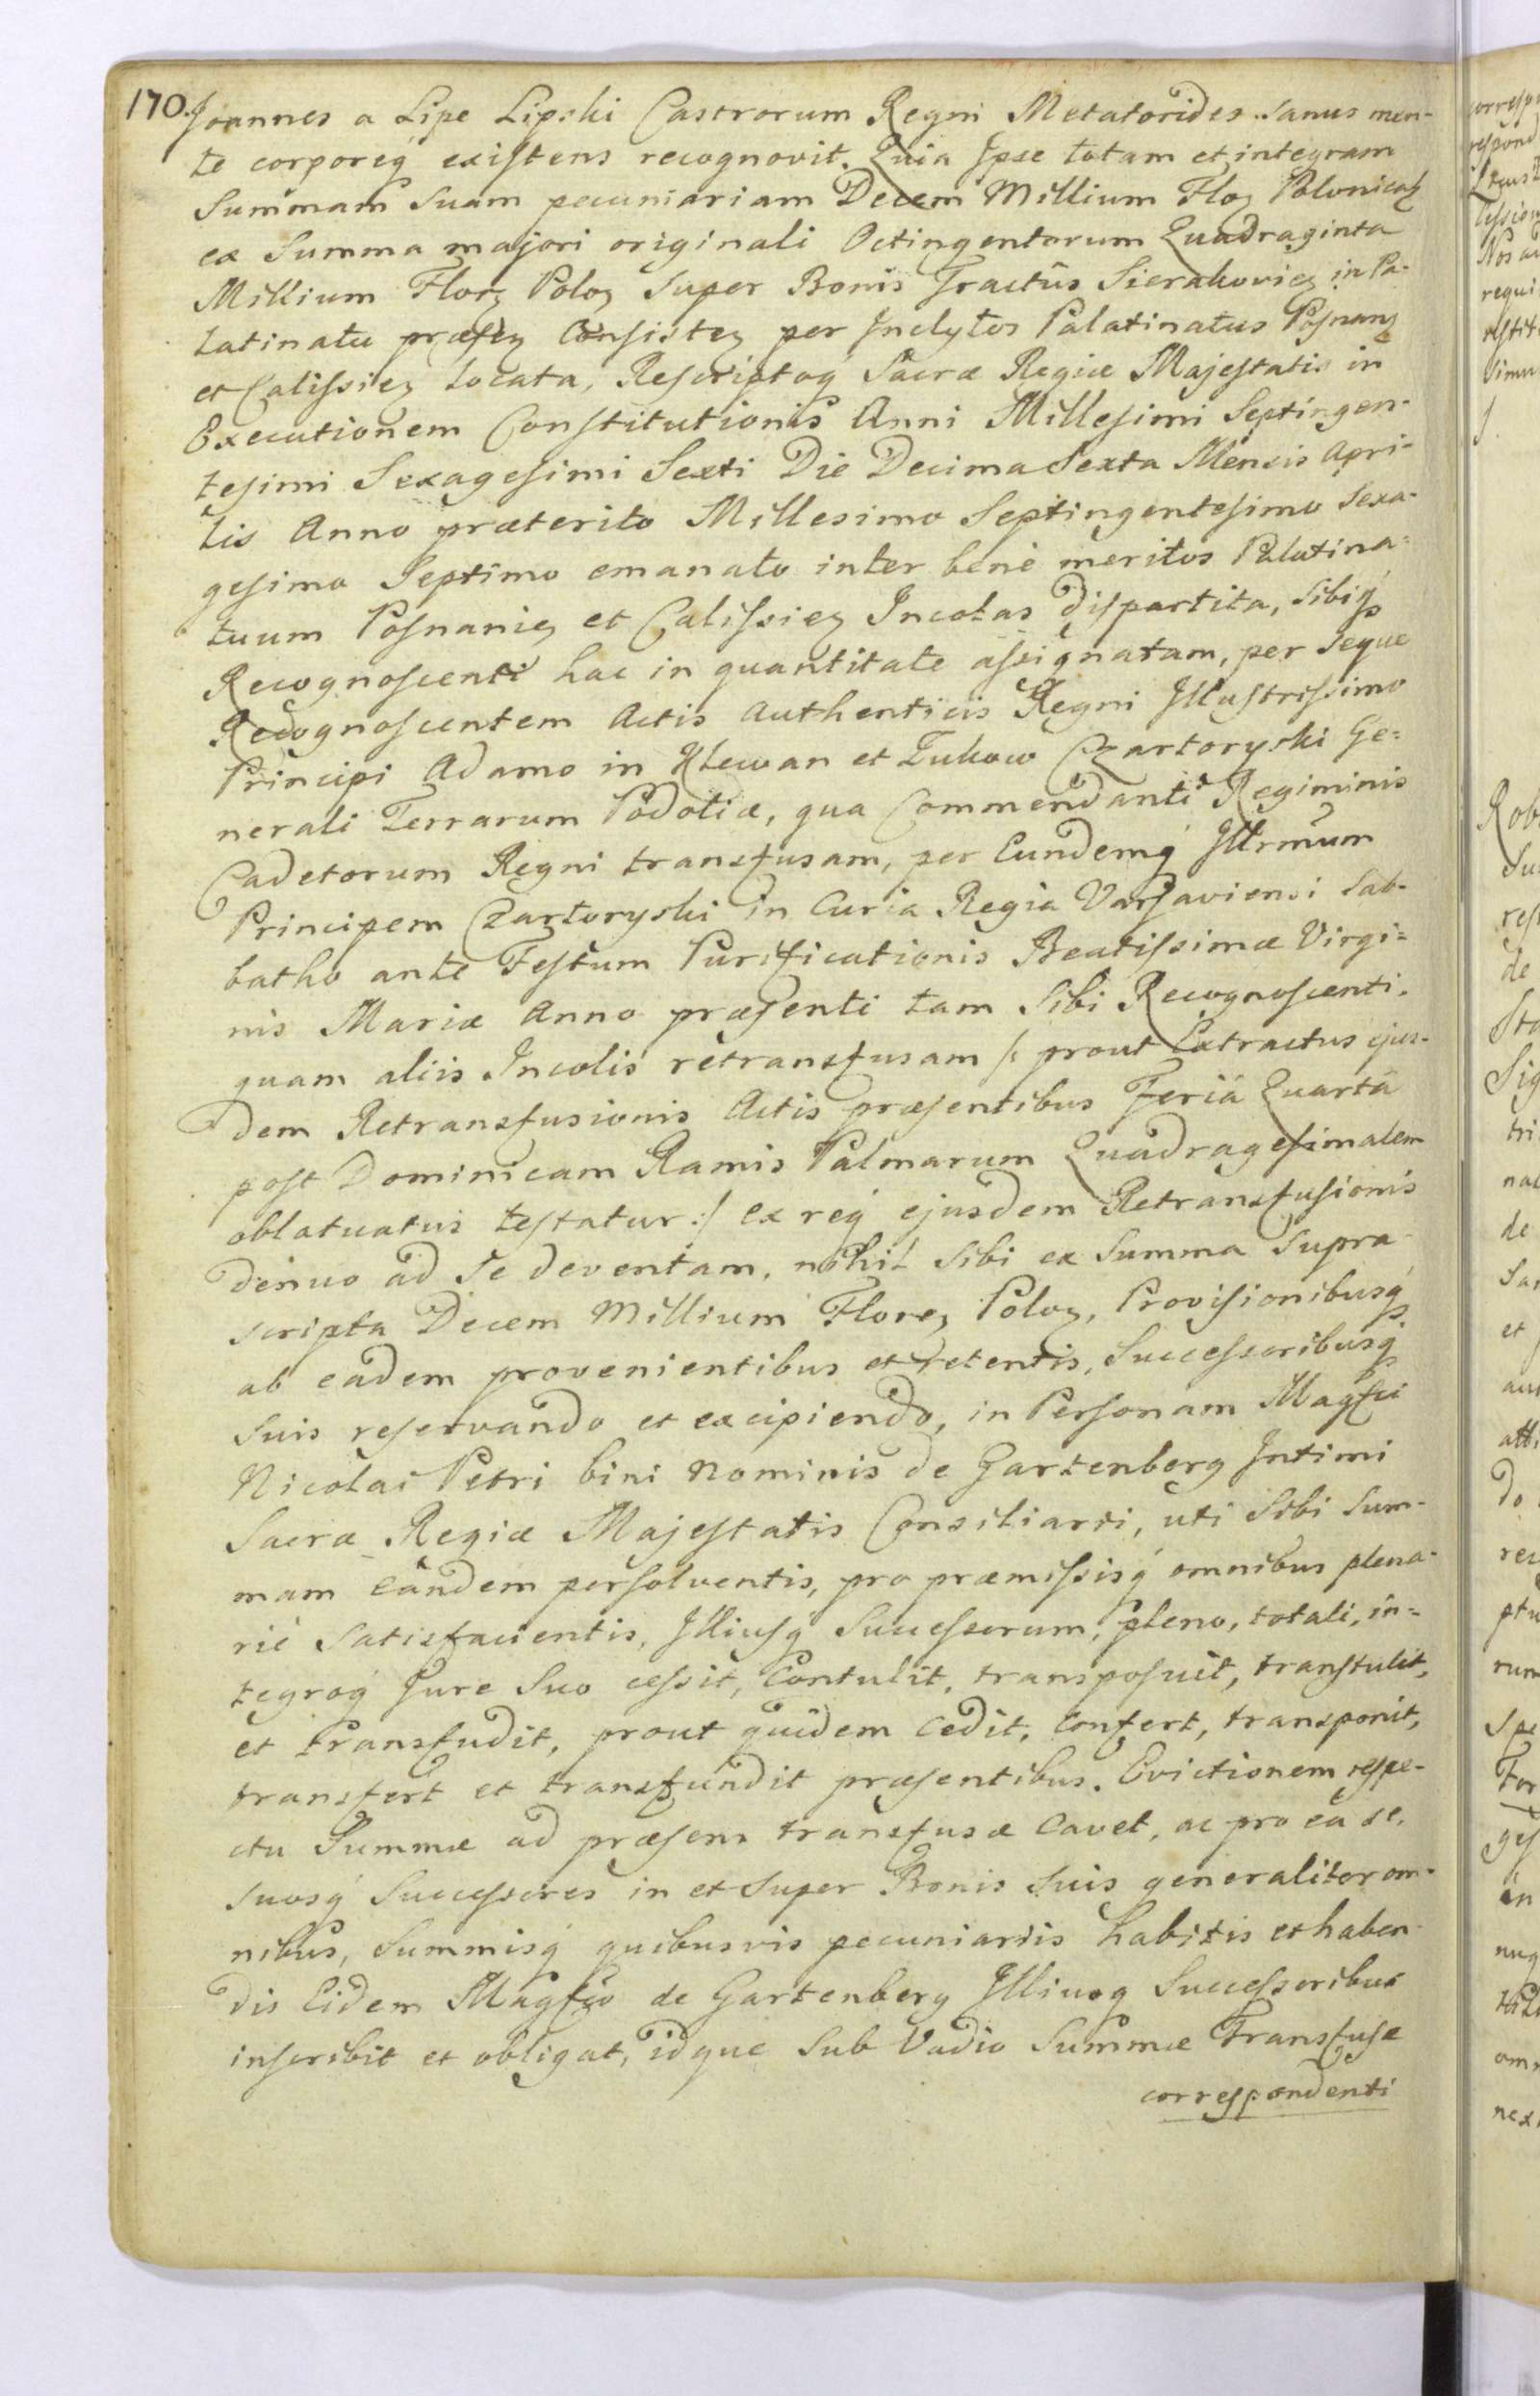 170. Joannes a Lipe Lipski Castrorum Regni Metatorides sanus men-
te corporeq́ existens recognovit. Quia Ipse totam et integram
Summam Suam pecuniariam Decem Millium Floꝫ Polonicalꝫ
ex Summa majori originali Octingentorum Quadraginta
Millium Florꝫ Poloꝫ Super Bonis Tractûs Sierakovieꝫ in Pa-
latinatu præseꝫ Consisteꝫ per Inclytos Palatinatus Posnanꝫ
et Calissieꝫ locata, Rescriptoq́ Sacræ Regiæ Majestatis in
Executionem Constitutionis Anni Millesimi Septingen-
tesimi Sexagesimi Sexti Die Decima Sexta Mensis Apri-
lis Anno præterito Millesimo Septingentesimo Sexa-
gesimo Septimo emanato inter benè meritos Palatina-
tuum Posnanieꝫ et Calissieꝫ Incolas dispartita, sibiq́
Recognoscenti hac in quantitate assignatam, per seque
Recognoscentem Actis Authenticis Regni Illustrissimo
Principi Adamo in Klewan et Zukow Czartoryski Ge=
nerali Terrarum Podoliæ, qua Commendanti Regiminis
Cadetorum Regni transfusam, per Eundemq́ Illrmum
Principem Czartoryski in Curia Regia Varsaviensi Sab-
batho ante Festum Purificationis Beatissimæ Virgi=
nis Mariæ Anno præsenti tam Sibi Recognoscenti,
quam aliis Incolis retransfusam /: prout Extractus ejus-
dem Retransfusionis Actis præsentibus Feriâ Quartâ
post Dominicam Ramis Palmarum Quadragesimalem
oblatuatus testatur :/ ex req́ ejusdem Retransfusionis
denuo ad se deventam, nihil sibi ex Summa supra
scripta Decem Millium Floreꝫ Poloꝫ, Provisionibusq́
ab eadem provenientibus et retentis, Successoribusq́
Suis reservando et excipiendo, in Personam Magfci
Nicolai Petri bini nominis de Gartenberg Intimi
Sacræ Regiæ Majestatis Consiliarii, uti Sibi Sum-
mam Eandem persolventis, pro præmissisq́ omnibus plena-
riè satisfacientis, Illiusq́ Successorum, pleno, totali, in=
tegroq́ Jure Suo cessit, Contulit, transposuit, transtulit,
et transfudit, prout quidem Cedit, Confert, transponit,
transfert et transfundit præsentibus. Evictionem respe-
ctu Summæ ad præsens transfusæ Cavet, ac pro eâ se,
suosq́ Successores in et super Bonis suis generaliter om-
nibus, Summisq́ quibusvis pecuniariis habitis et haben-
dis Eidem Magfco de Gartenberg Illiusq́ Successoribus
inscribit et obligat, idque Sub Vadio Summæ Transfusæ
correspondenti